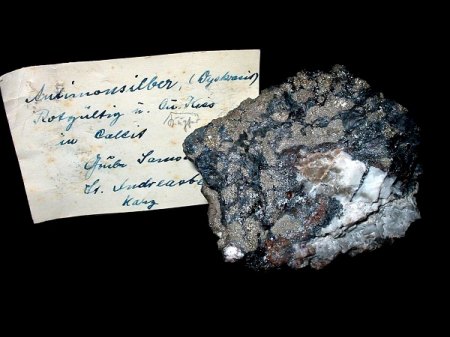 Antimonsilber, (Dyskrasit)
Rotgültig u. Cu. Kies
in Calcit
Grube Samso
St. Andreasb
Harz